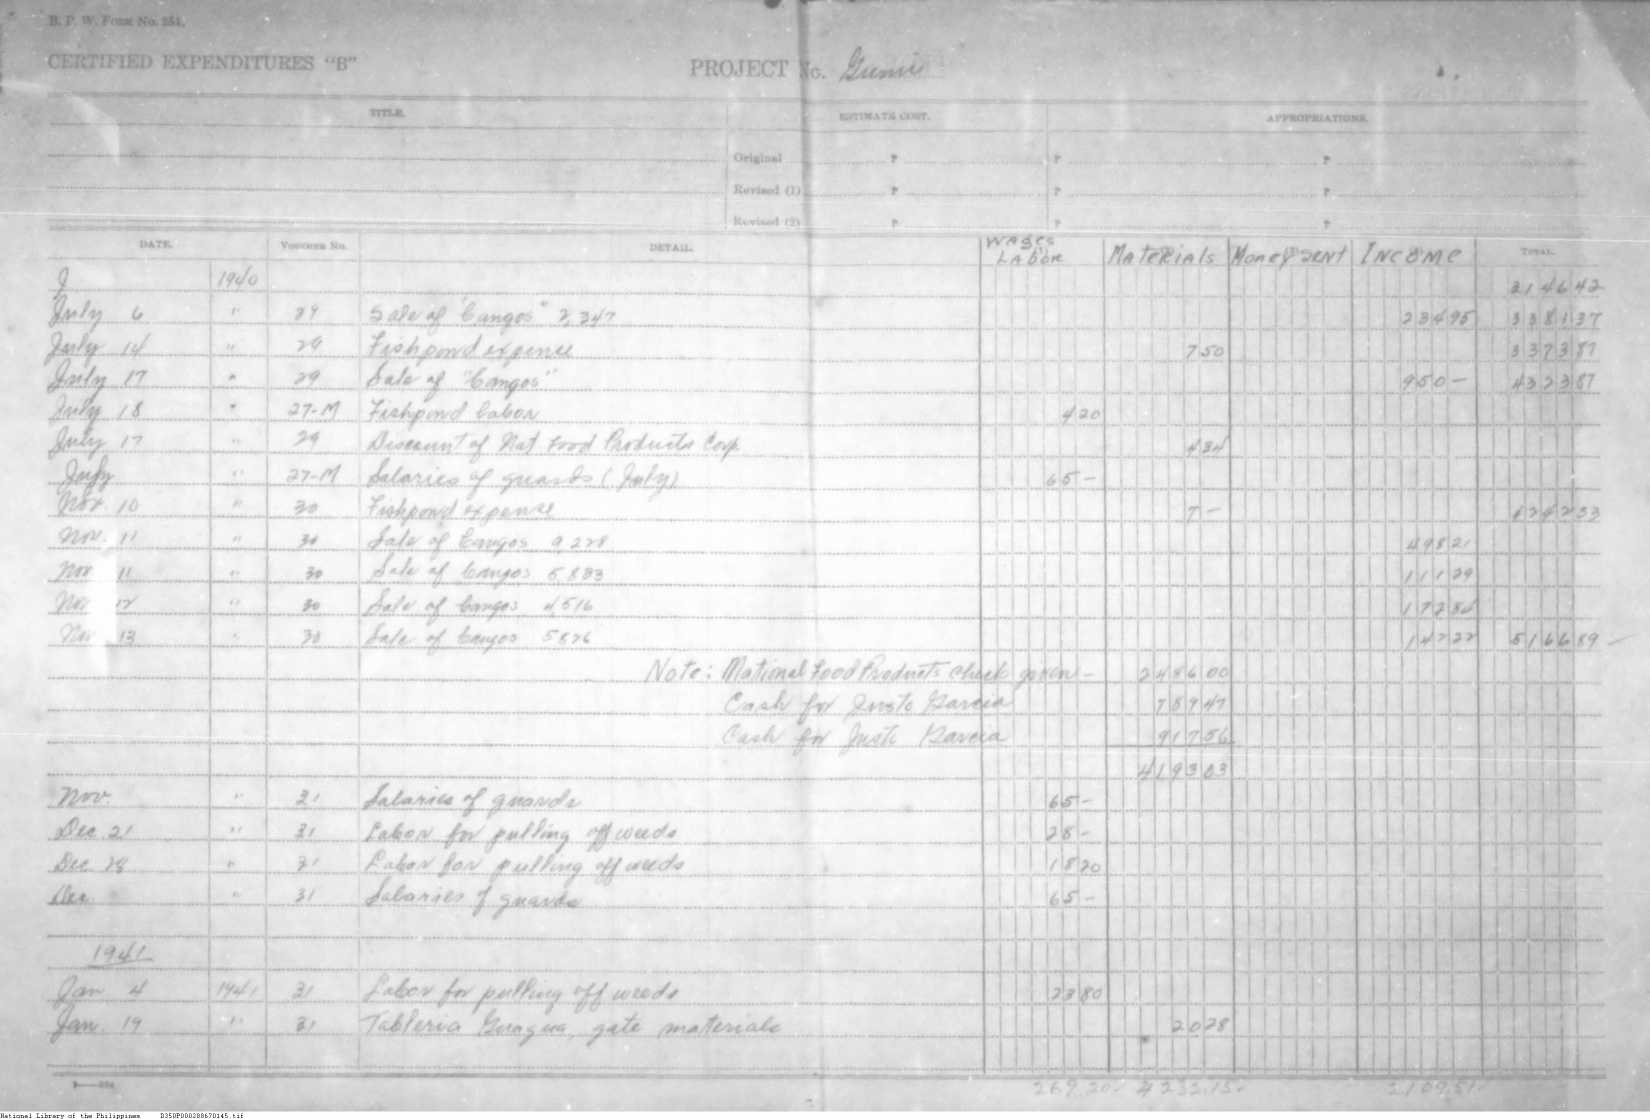 B. P. W. Form No. 251.
CERTIFIED EXPENDITURES "B" PROJECT No.
TITLE. ESTIMATE COST. APPROPRIATIONS.
Original ₱ ₱ ₱
Revised (1) ₱ ₱ ₱
Revised (2) ₱ ₱ ₱
DATE. Voucher No. DETAIL. Wages Labor Materials Money sent Income Total.
J 1940 314642
July 6 " 29 Sale of "bangos" 2,347 23495 338137
July 14 " 29 Fishpond expense 750 337387
July 17 " 29 Sale of "bangos" 950- 432387
July 18 " 27-M Fishpond labor 420
July 17 " 29 Discount of Nat Food Products Corp 434
July " 27-M Salaries of guards (July) 65-
Nov. 10 " 30 Fishpond expense 7-
Nov. 11 " 30 Sale of bangos 9,228 49821
Nov 11 " 30 Sale of bangos 5,883 11129
Nov 12 " 30 Sale of bangos 4,516 17284
Nov 13 " 30 Sale of bangos 5876 14722 516689
Note: National Food Products Check given - 248600
Cash for Justo Garcia 78947
Cash for Justo Garcia 91756
419303
Nov. " 31 Salaries of guards 65-
Dec. 21 " 31 Labor for pulling off weeds 28-
Dec 28 " 31 Labor for pulling off weeds 1820
Dec " 31 Salaries of guards 65-
1941
Jan 4 1941 31 Labor for pulling off weeds 2380
Jan. 19 " 31 Tableria Guagua, gate materials 2028
269.20 4232.15 2,109.51
National Library of the Philippines D35DP000288670145.tif